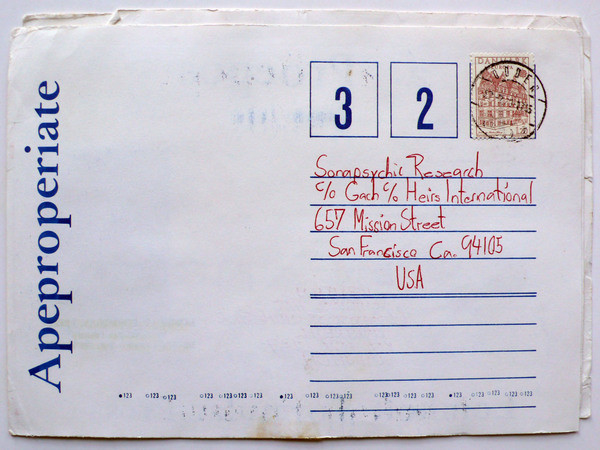 Apeproperiate
3 2
DANMARK
Sonapsychic Research
c/o Gach c/o Heirs International
657 Mission Street
San Francisco Ca. 94105
USA
123 123 123 123 123 123 123 123 123 123 123 123 123